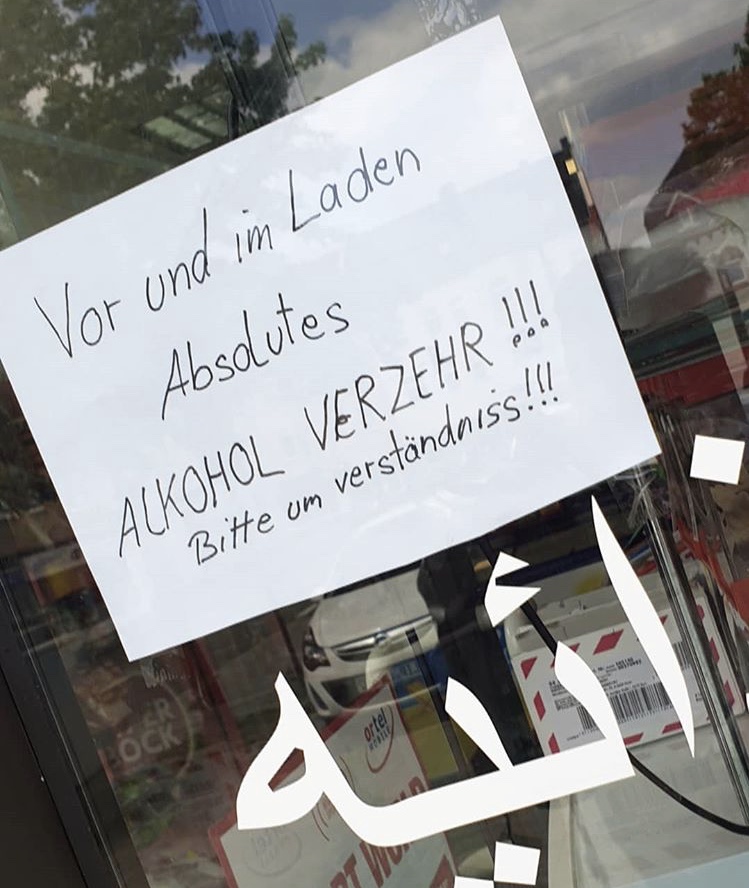 Vor und im Laden
Absolutes
ALKOHOL VERZEHR !!!
Bitte um verständniss!!!
ائيه
ortel
MOBILE